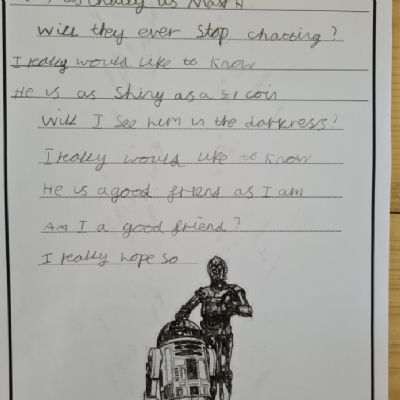 as chatty as Max A
Will they ever stop chatting?
I really would like to know
He is as shiny as a £1 coin
Will I see him in the darkness?
I really would like to know
He is a good friend as I am
Am I a good friend?
I really hope so